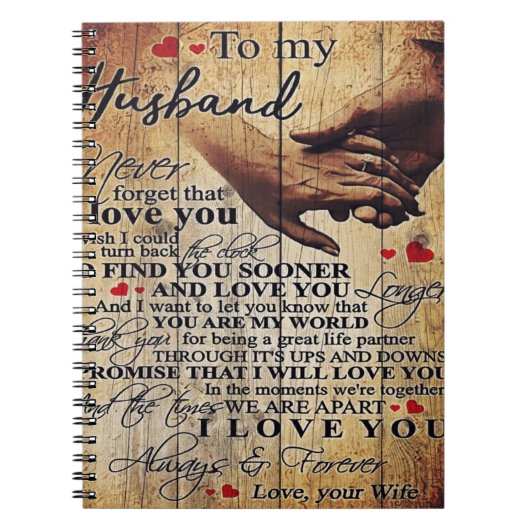 To my
Husband
Never
forget that
love you
wish I could
turn back the clock
FIND YOU SOONER
AND LOVE YOU Longer
And I want to let you know that
YOU ARE MY WORLD
for being a great life partner
THROUGH IT'S UPS AND DOWNS
PROMISE THAT I WILL LOVE YOU
In the moments we're together
And the times WE ARE APART
I LOVE YOU
Always & Forever
Love, your Wife